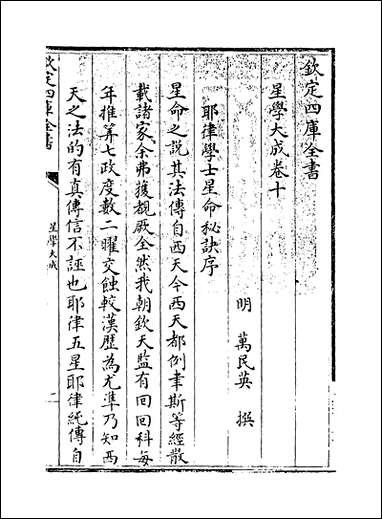 欽定四庫全書
星學大成卷十
明 萬民英 撰
耶律學士星命秘訣序
星命之説其法傳自西天今西天都例聿斯等經散
載諸家余弗獲覩厥全然我朝欽天監有回回科每
年推算七政度數二曜交蝕較漢歷為尤準乃知西
天之法的有真傳信不誣也耶律五星耶律純傳自
欽定四庫全書
星學大成
一